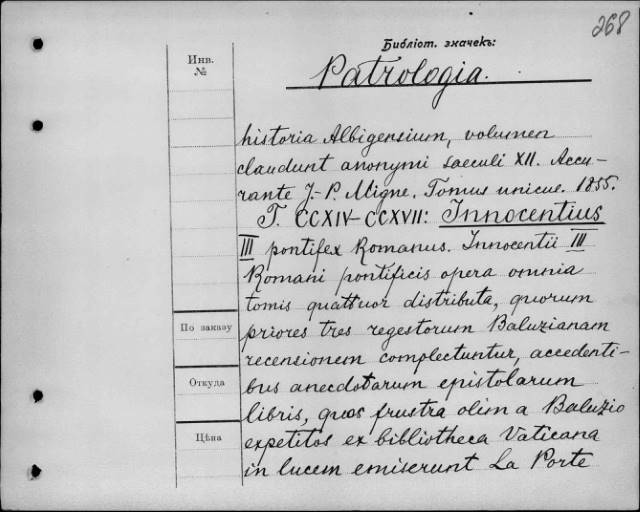 268
Библіот. значекъ:
Инв.
№
Patrologia.
historia Albigensium, volumen
claudunt anonymi saeculi XII. Accu-
rante J.-P. Migne. Tomus unicus. 1855.
T. CCXIV-CCXVII: Innocentius
III pontifex Romanus. Innocentii III
Romani pontificis opera omnia
tomis quattuor distributa, quorum
По заказу
priores tres regestorum Baluzianam
recensionem complectuntur, accedenti-
Откуда
bus anecdotarum epistolarum
libris, quos frustra olim a Baluzio
Цѣна
expetitos ex bibliotheca Vaticana
in lucem emiserunt La Porte